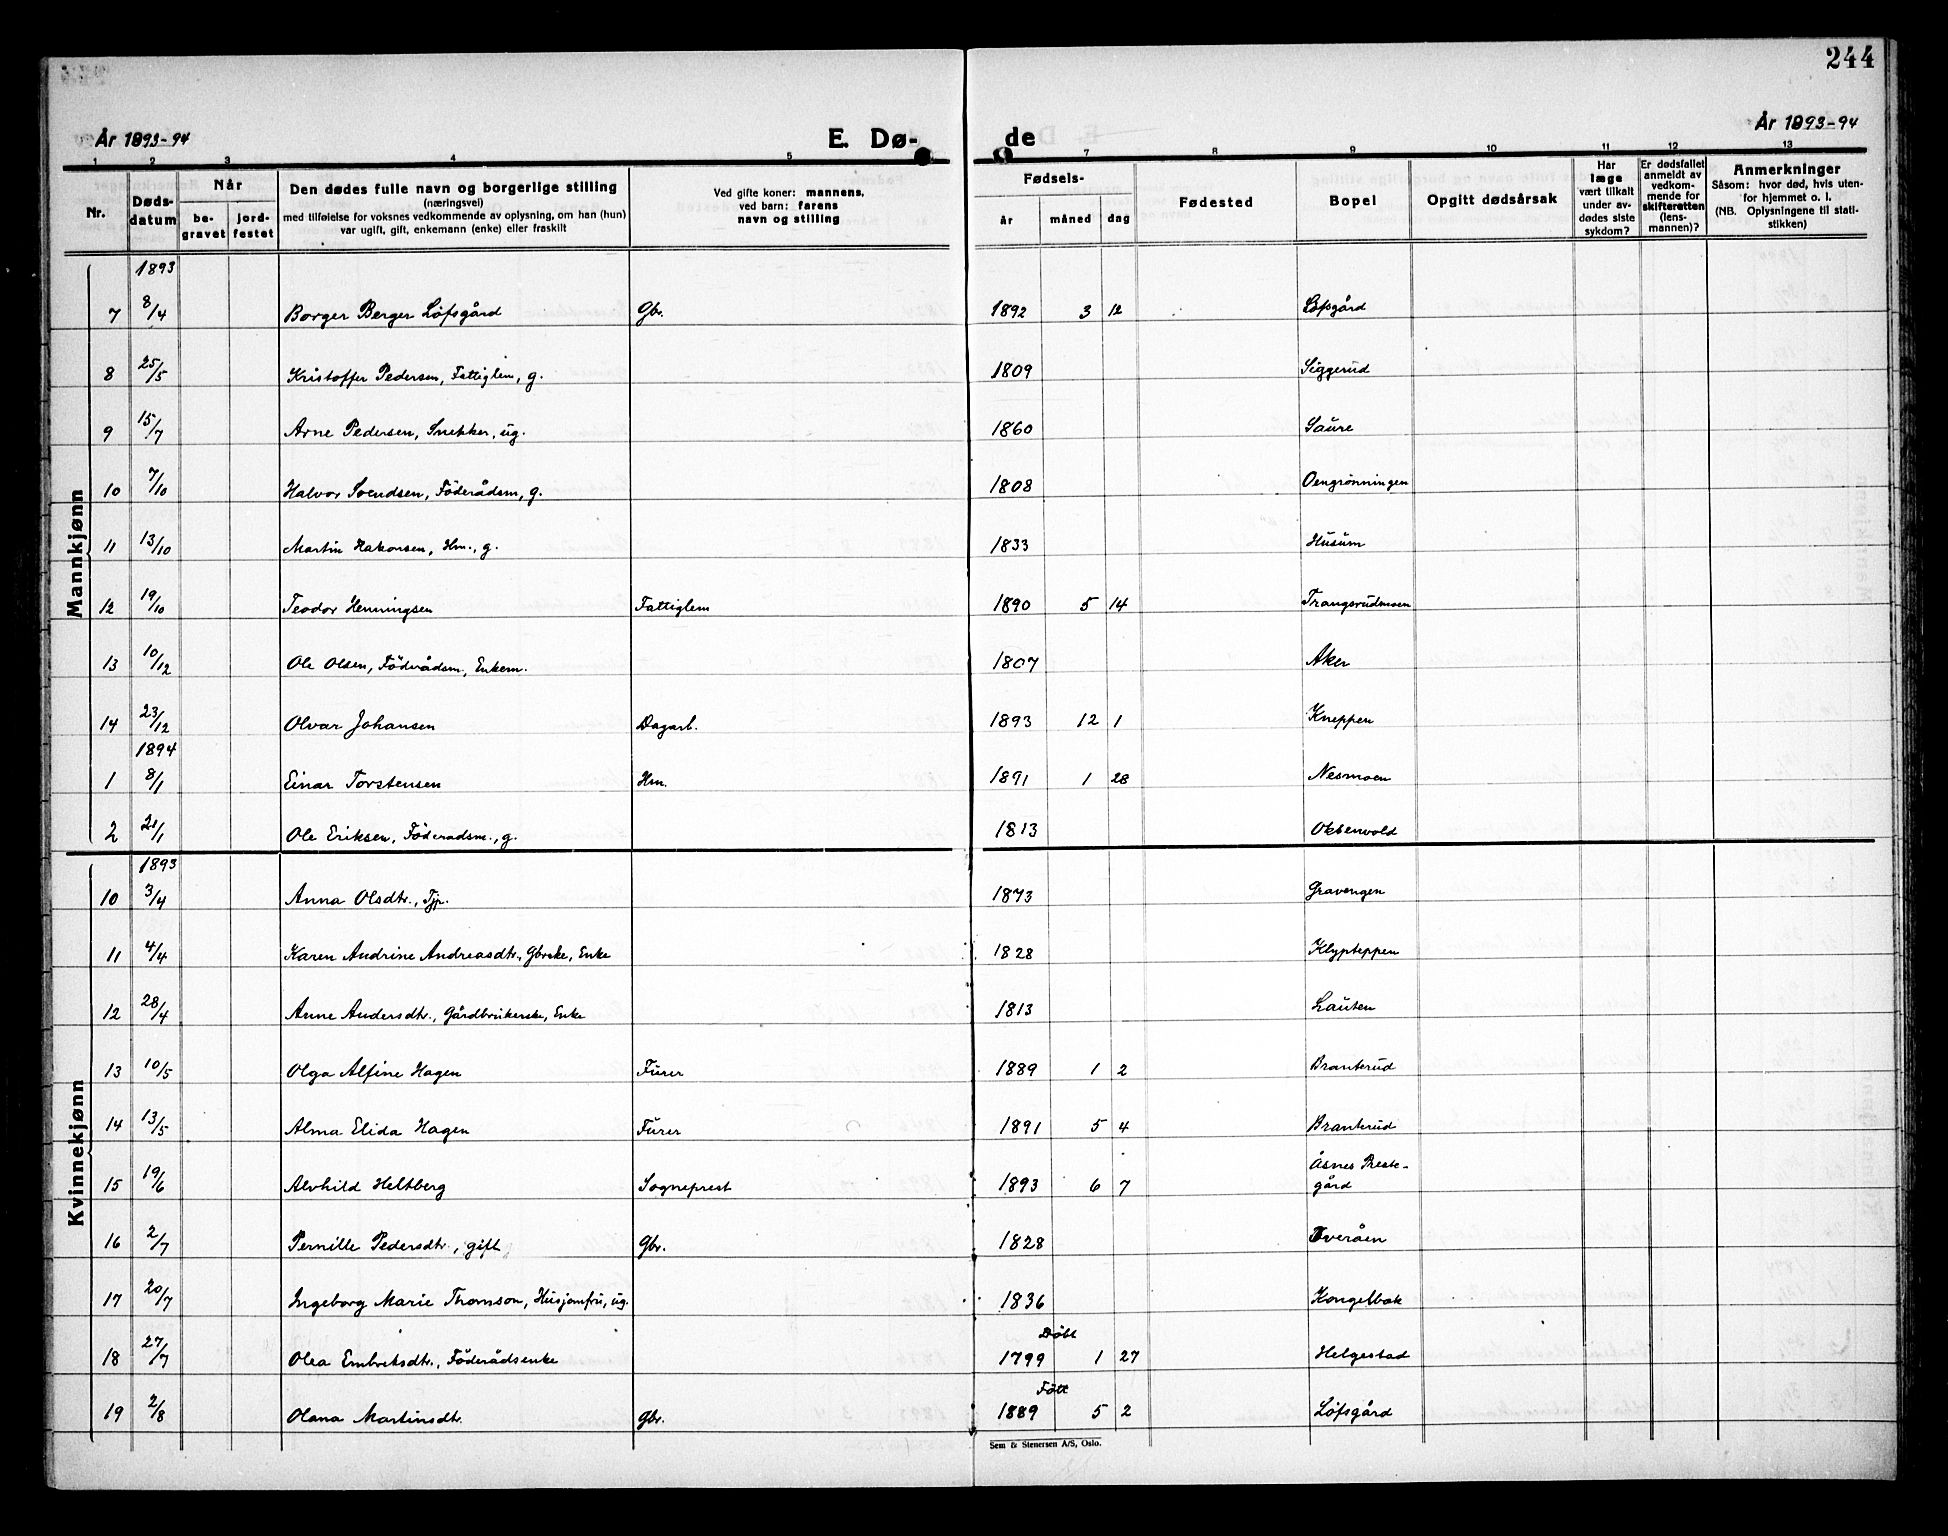 244
År 1893-94
E. Dø-
de
År 1893-94
1 2 3 4 5 7 8 9 10 11 12 13
Nr.
Døds-
datum
Når
be-
gravet
jord-
festet
Den dødes fulle navn og borgerlige stilling
(næringsvei)
med tilføielse for voksnes vedkommende av oplysning, om han (hun)
var ugift, gift, enkemann (enke) eller fraskilt
Ved gifte koner: mannens,
ved barn: farens
navn og stilling
Fødsels-
år
måned
dag
Fødested
Bopel
Opgitt dødsårsak
Har
læge
vært tilkalt
under av-
dødes siste
sykdom?
Er dødsfallet
anmeldt av
vedkom-
mende for
skifteretten
(lens-
mannen)?
Anmerkninger
Såsom: hvor død, hvis uten-
for hjemmet o. l.
(NB. Oplysningene til stati-
stikken)
Mannkjønn
1893
7 8/4 Borger Berger Løfsgård Gbr. 1892 3 12 Løfsgård
8 25/5 Kristoffer Pedersen, Fattiglem, g. 1809 Siggerud
9 15/7 Arne Pedersen, Snekker, ug. 1860 Saure
10 7/10 Halvor Svendsen, Föderådsm, g. 1808 Oengrønningen
11 13/10 Martin Hakonsen, Hm., g. 1833 Husum
12 19/10 Teodor Henningsen Fattiglem 1890 5 14 Trangsrudmoen
13 10/12 Ole Olsen, Föderådsm, Enkem. 1807 Aker
14 23/12 Olvar Johansen Dagarb. 1893 12 1 Kneppen
1894
1 8/1 Einar Torstensen Hm. 1891 1 28 Nesmoen
2 21/1 Ole Eriksen, Föderadsm., g. 1813 Oksenvold
Kvinnekjønn
1893
10 3/4 Anna Olsdtr., Tjp. 1873 Gravengen
11 4/4 Karen Andrine Andreasdtr., Gbrske, Enke 1828 Klypteppen
12 28/4 Anne Andersdtr., Gårdbrukerske, Enke 1813 Lauten
13 10/5 Olga Alfine Hagen Furer 1889 1 2 Branterud
14 13/5 Alma Elida Hagen Furer 1891 5 4 Branterud
15 19/6 Alvhild Heltberg Sogneprest 1893 6 7 Åsnes Preste-
gård
16 2/7 Pernille Pedersdtr., gift Gbr. 1828 Overåen
17 20/7 Ingeborg Marie Thomson, Husjomfru, ug. 1836 Kongelbak
Döbt
18 27/7 Olea Embretsdtr., Föderådsenke 1799 1 27 Helgestad
Fött
19 2/8 Olana Martinsdtr. Gbr. 1889 5 2 Løfsgård
Sem & Stenersen A/S, Oslo.